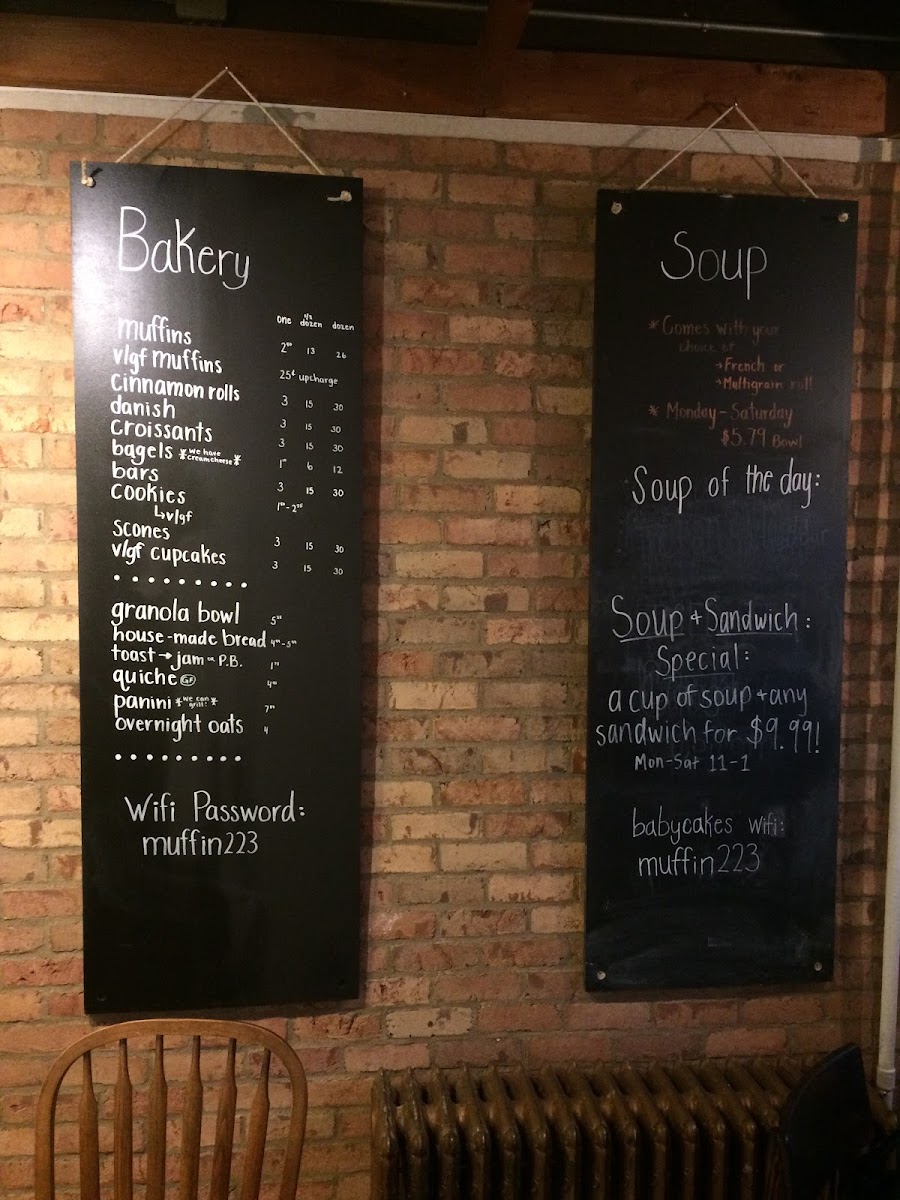 Bakery
one 1/2 dozen dozen
muffins 13 26
v/gf muffins 25¢ upcharge
cinnamon rolls 3 15 30
danish 3 15 30
croissants 3 15 30
bagels *we have creamcheese* 6 12
bars 3 15 30
cookies
↳v/gf
scones 3 15 30
v/gf cupcakes 3 15 30
granola bowl
house-made bread
toast → jam or P.B.
quiche GF
panini *we can grill!*
overnight oats 4
Wifi Password:
muffin223
Soup
*Comes with your
choice of
→French or
→Multigrain roll
* Monday-Saturday
$5.79 Bowl
Soup of the day:
Soup + Sandwich:
Special:
a cup of soup + any
sandwich for $9.99!
Mon-Sat 11-1
babycakes wifi:
muffin223